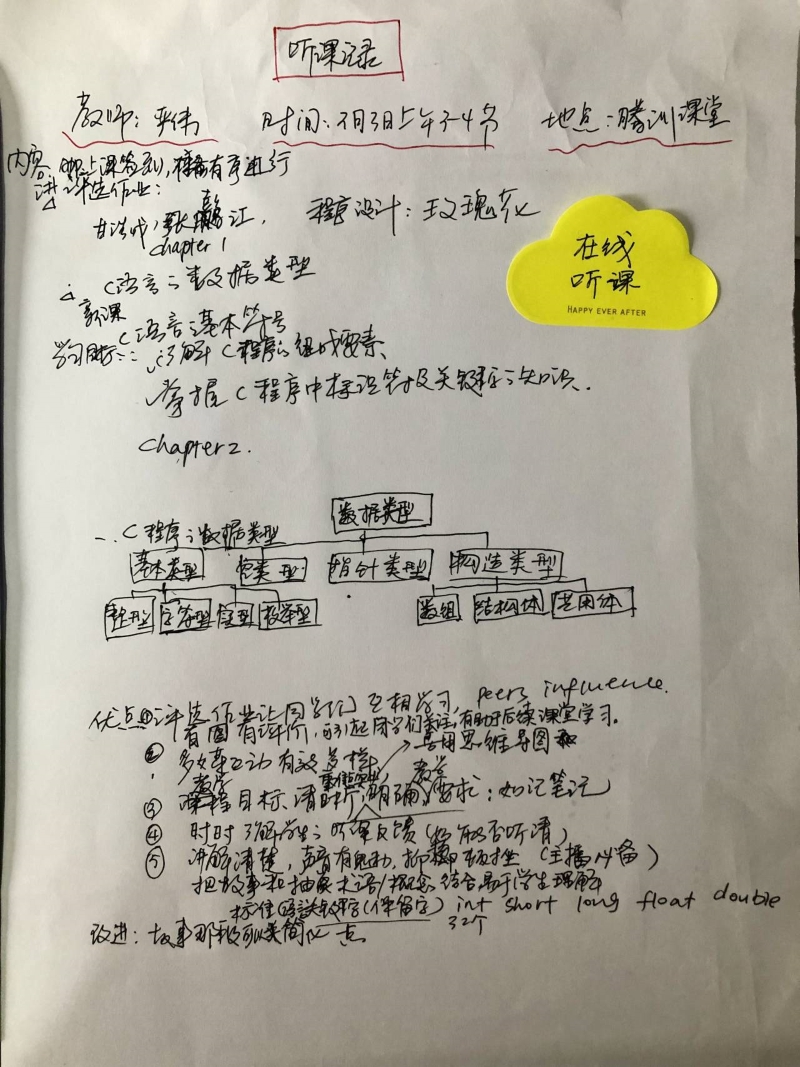 听课记录
教师：尹伟 时间：3月3日上午3-4节 地点：腾讯课堂
内容 网上课签到，有序进行
评选作业：
程序设计：玫瑰花
chapter 1
C语言之数据类型
新课
C语言基本符号
学习目标：了解C程序的组成要素、
掌握C程序中标识符及关键字之知识.
chapter 2.
在线
听课
HAPPY EVER AFTER
数据类型
一、C程序之数据类型
基本类型 空类型 指针类型 构造类型
整型 字符型 实型 枚举型 数组 结构体 共用体
优点①评选作业让同学们互相学习, peers influence.
有图有评价，引起同学们关注，有助于后续课堂学习。
善用思维导图
② 多次互动有效
教学 教学
③ 课程目标、清晰，明确要求：如记笔记
④ 时时了解学生之听课反馈（能否听清）
⑤ 讲解清楚，声音有魅力，抑扬顿挫（主播必备）
把故事和抽象术语/概念结合易于学生理解
关键字（保留字） int short long float double
32个
改进：故事那段可以简化一点